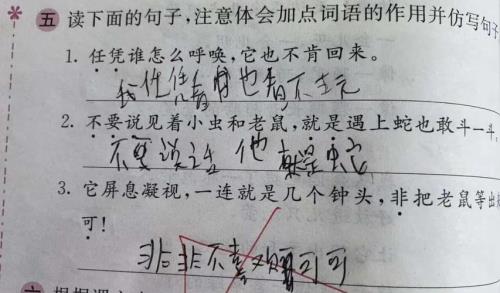 五 读下面的句子,注意体会加点词语的作用并仿写句子
1. 任凭谁怎么呼唤,它也不肯回来。
我 也 不
2. 不要说见着小虫和老鼠,就是遇上蛇也敢斗一斗。
不要说话 他 就是蛇
3. 它屏息凝视,一连就是几个钟头,非把老鼠等出
可!
非非不喜欢 可可
六 根据课